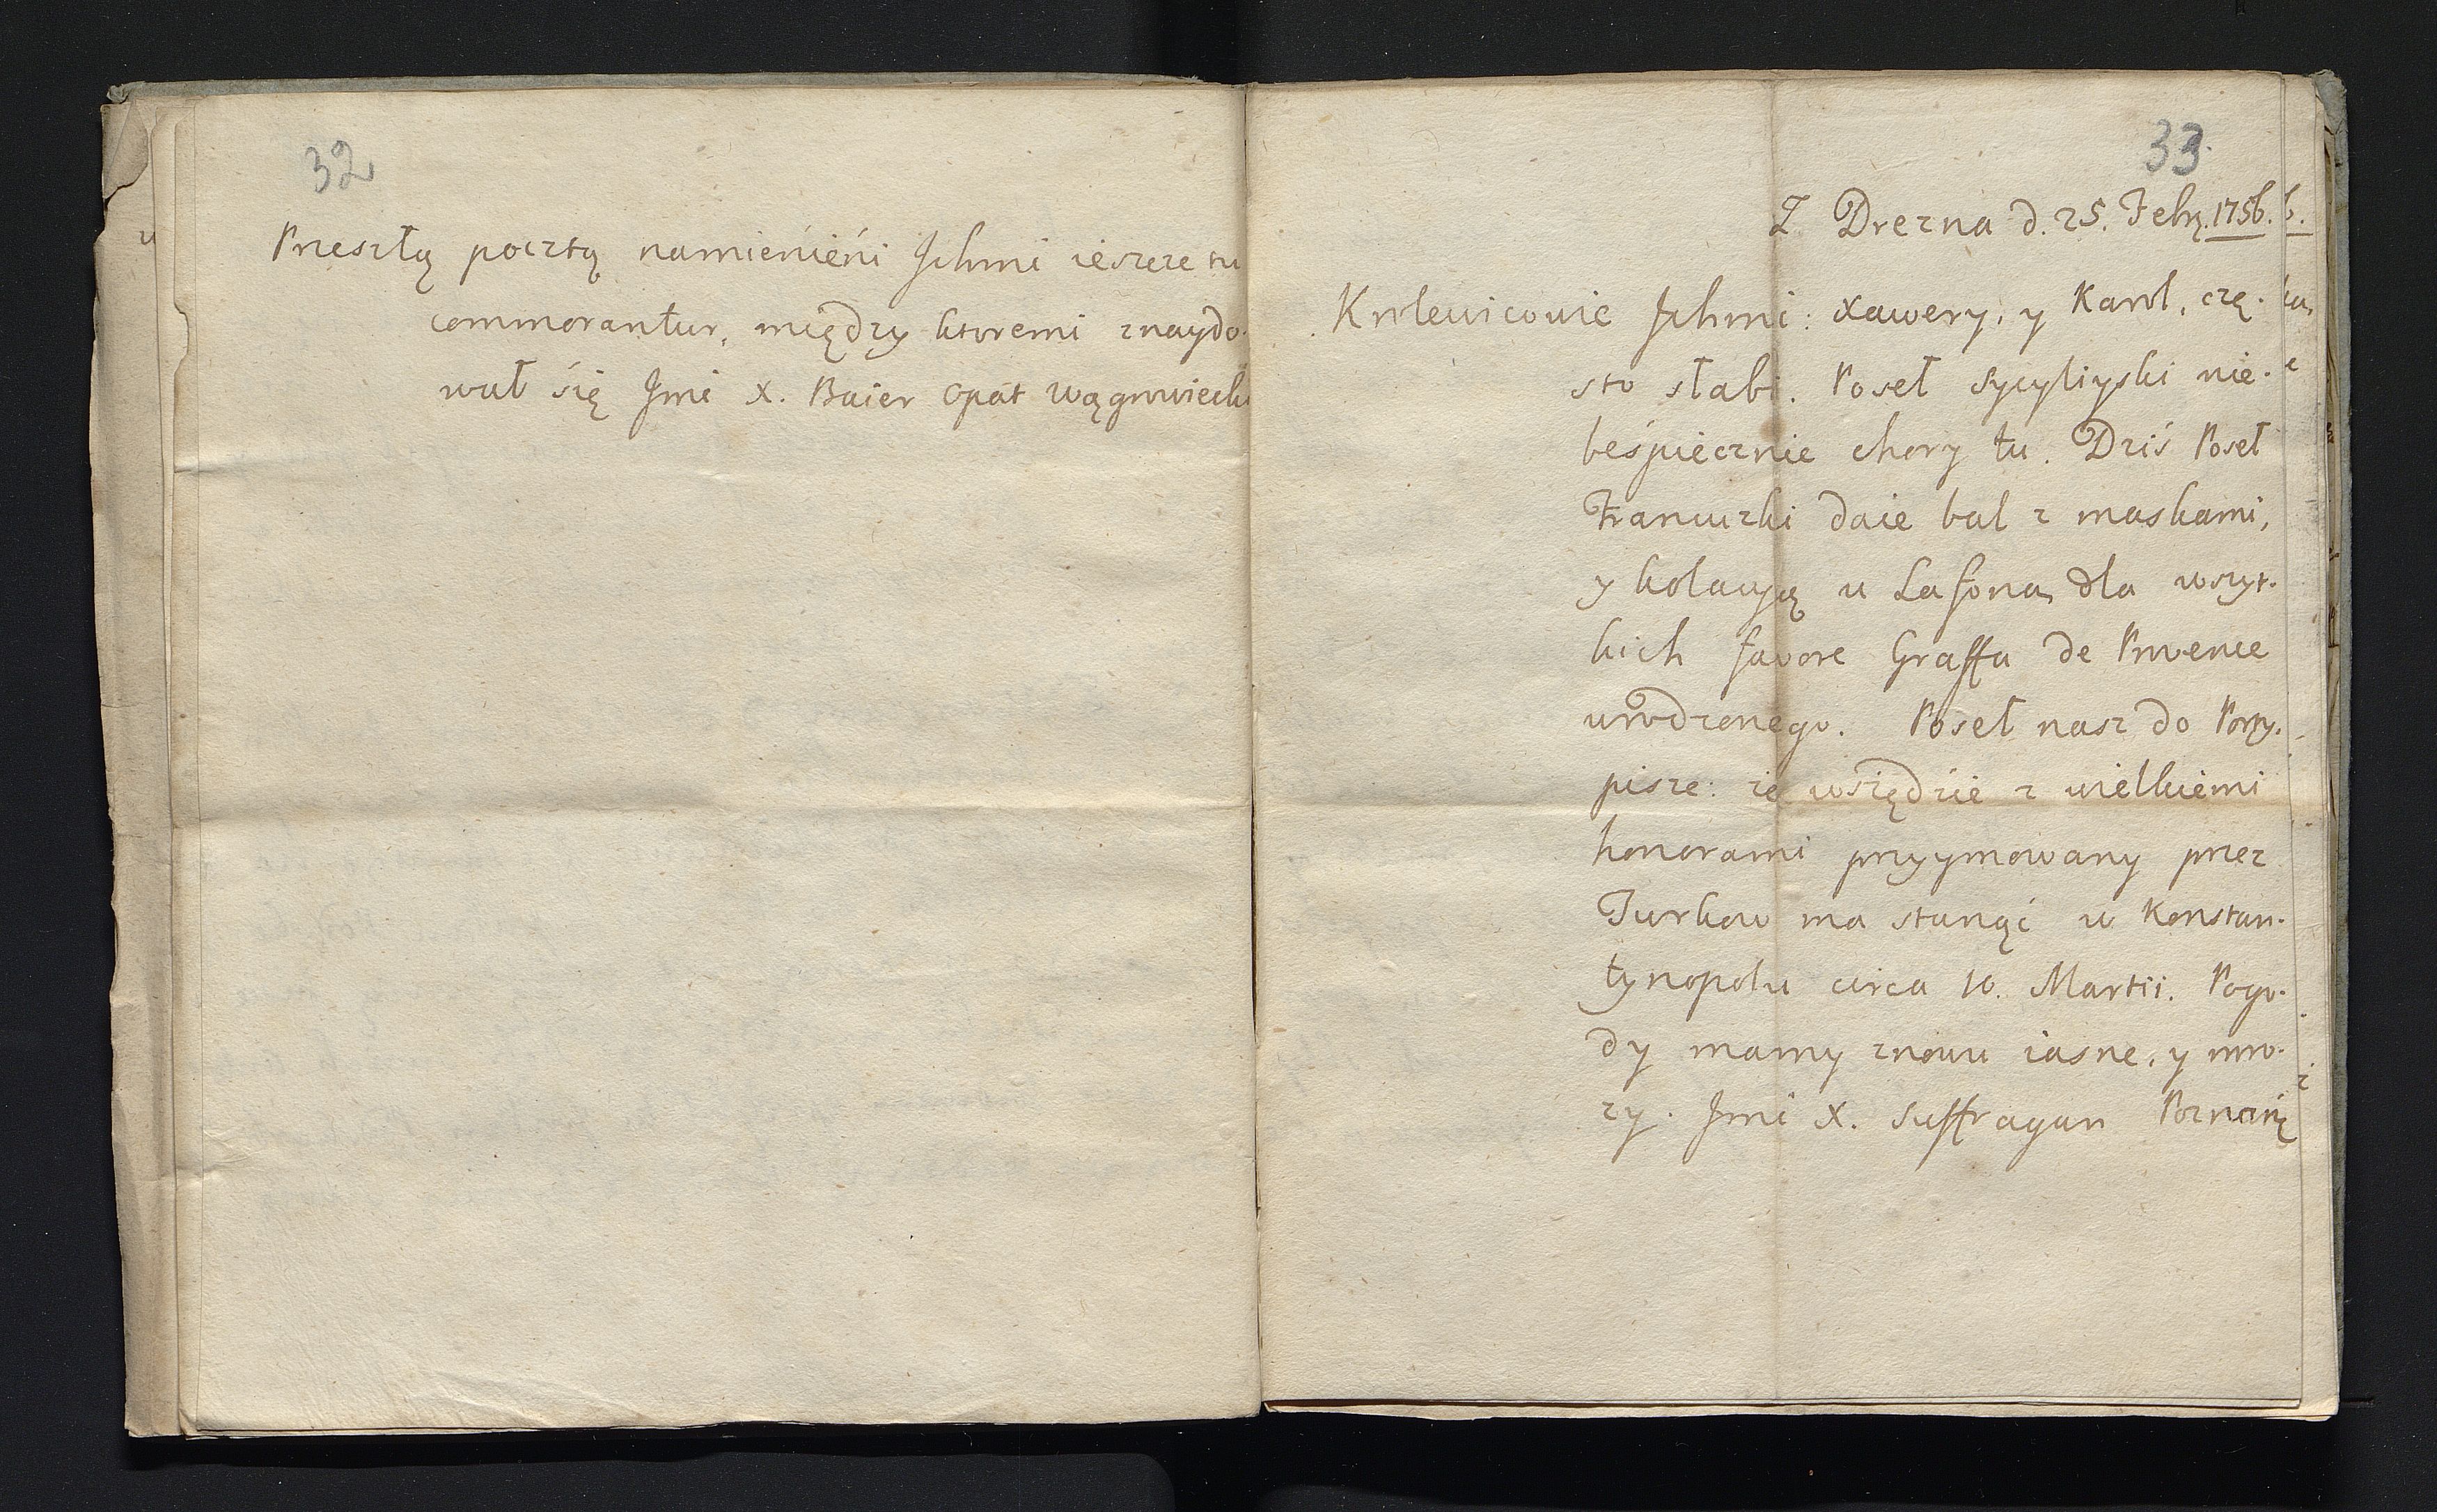 32
Przeszłą pocztą namienieńi Jchmi ieszcze tu
commorantur, między ktoremi znaydo-
wał się Jmć X. Baier Opat Wągrowiecki
33.
Z Drezna d. 25. Febr. 1756.
Krolewicowie Jchmć: Xawery, y Karol, czę-
sto słabi. Poseł Sycyliyski nie-
beśpiecznie chory tu. Dziś Poseł
Francuzki daie bal z maskami,
y kolacyą u Lafona, dla wszyt-
kich favore Graffa de Provence
urodzonego. Poseł nasz do Porty.
pisze: że wszędzie z wielkiemi
honorami przyymowany przez
Turkow ma stanąć w Konstan-
tynopolu circa 10. Martii. Pogo-
dy mamy znowu iasne, y mro-
zy. Jmć X. Suffragan Poznań: